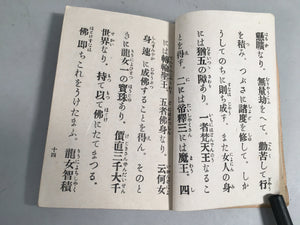 懸曠なり、無量劫をへて、勤苦して行
を積み、つぶさに諸度を修して、しか
うしてのちに則ち成ず。また女人の身
には猶五の障あり。一者梵天王なるこ
とを得ず。二には帝釋三には魔王。四
には轉輪聖王、五者佛身なり。云何女
身速に成佛することを得ん。そのと
きに龍女一の寶珠あり、價直三千大千
世界なり。持て以て佛にたてまつる。
佛即ちこれをうけたまふ。龍女智積
十四